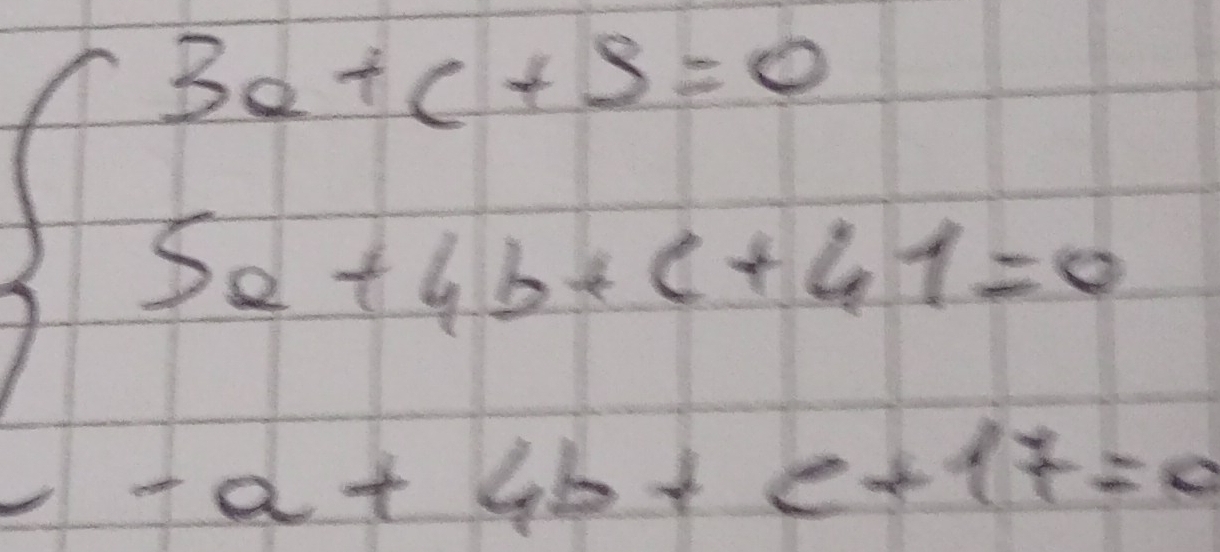 3a + c + 9 = 0
5a + 4b + c + 41 = 0
-a + 4b + c + 17 = 0